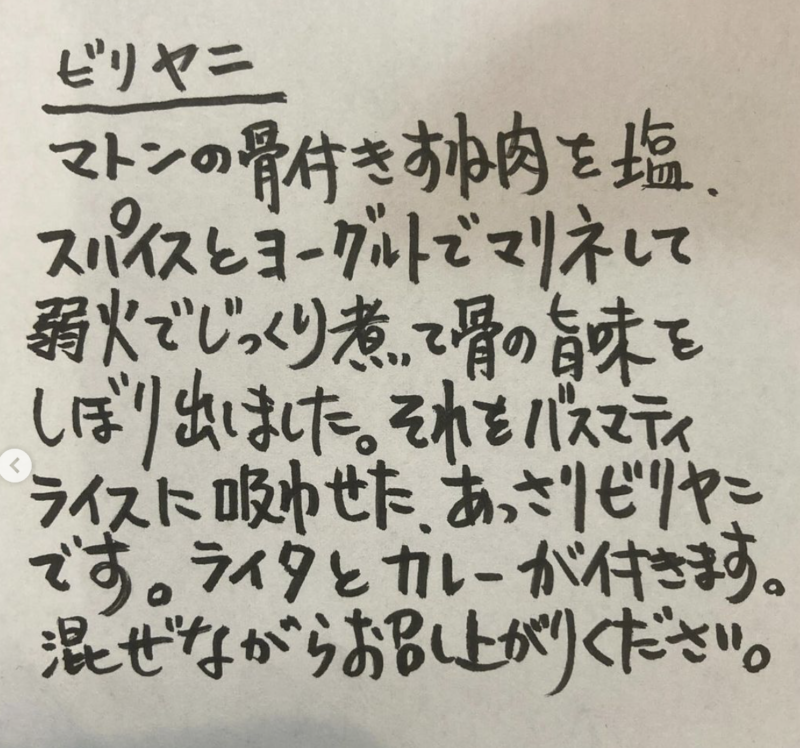 ビリヤニ
マトンの骨付きすね肉を塩、
スパイスとヨーグルトでマリネして
弱火でじっくり煮て骨の旨味を
しぼり出しました。それをバスマティ
ライスに吸わせた、あっさりビリヤニ
です。ライタとカレーが付きます。
混ぜながらお召し上がりください。